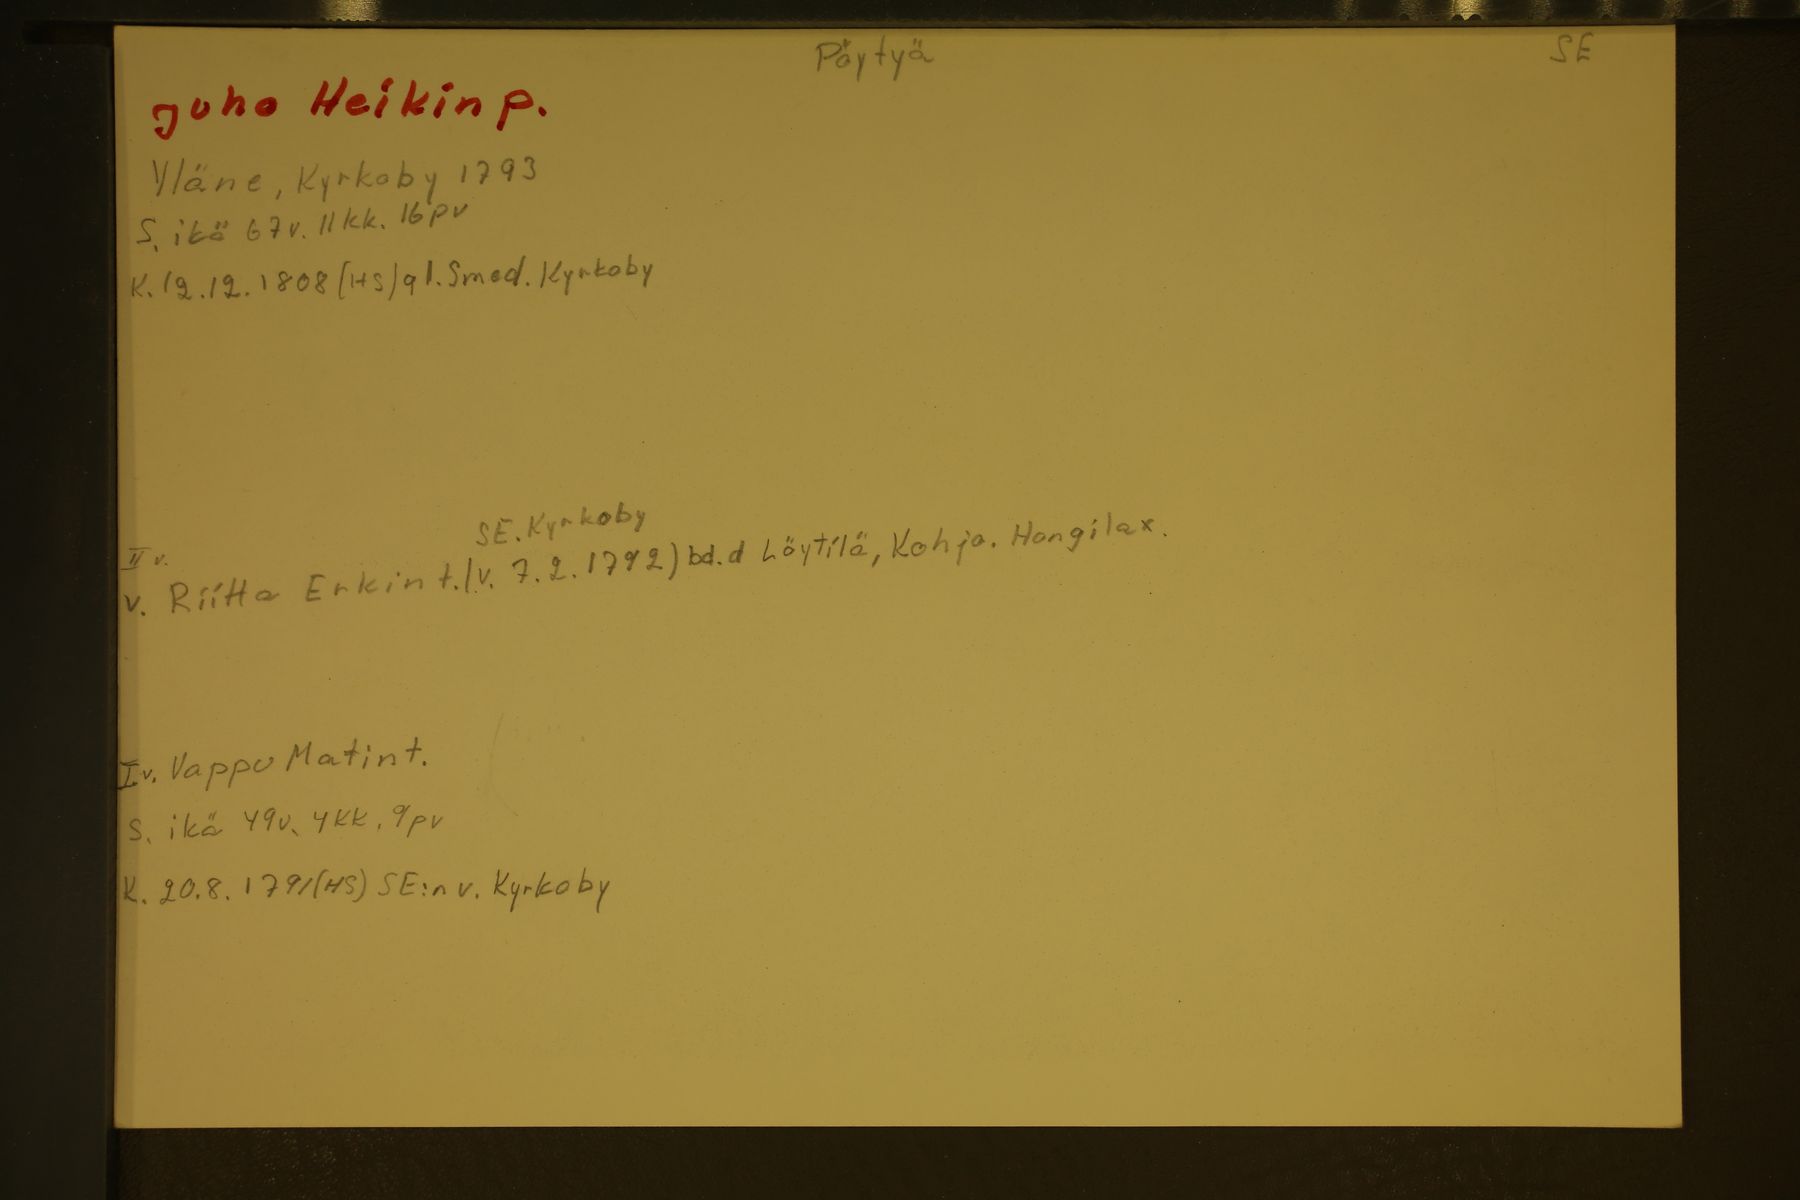 Pöytyä
SE
Juho Heikin p.
Yläne, Kyrkoby 1793
S. ikä 67v. 11kk. 16pv
K. 12.12.1808 (HS) gl. Smed. Kyrkoby
SE. Kyrkoby
II v.
v. Riitta Erkin t. (v. 7.2.1792) bd.d Löytilä, Kohja. Hongilax.
I v. Vappu Matint.
S. ikä 49v. 4kk. 9pv
K. 20.8.1791 (HS) SE:n v. Kyrkoby